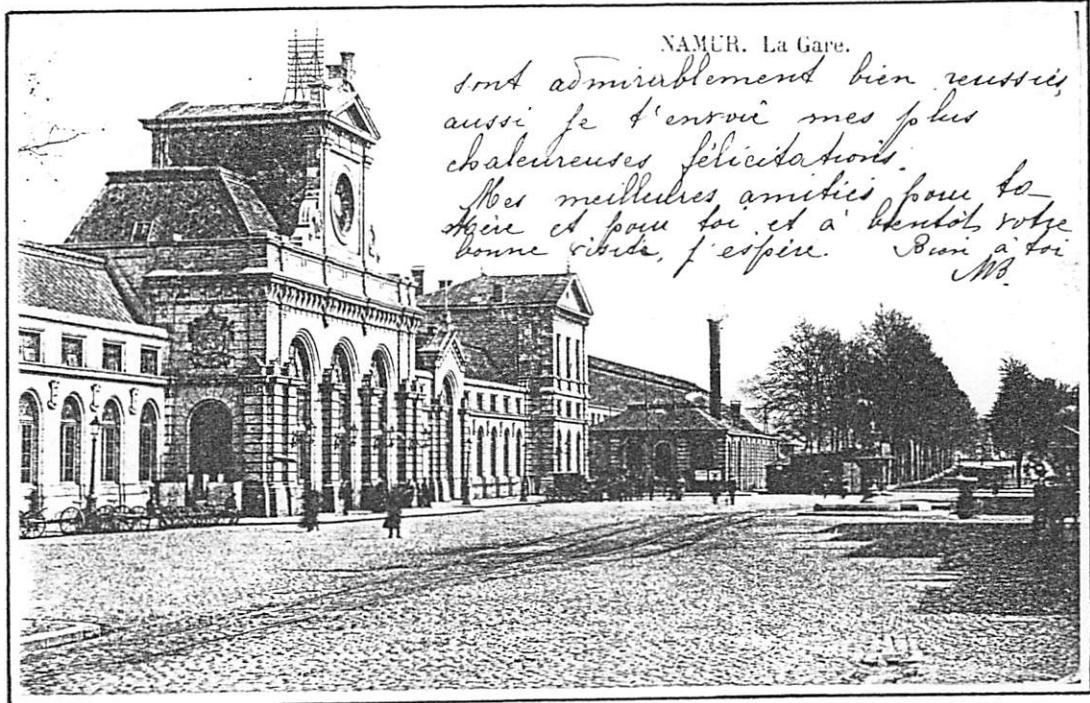 NAMUR. La Gare.
sont admirablement bien reussies,
aussi je t'envoie mes plus
chaleureuses félicitations.
Mes meilleures amitiés pour ta
Mère et pour toi et à bientôt votre
bonne visite, j'espère. Bien à toi
MB.